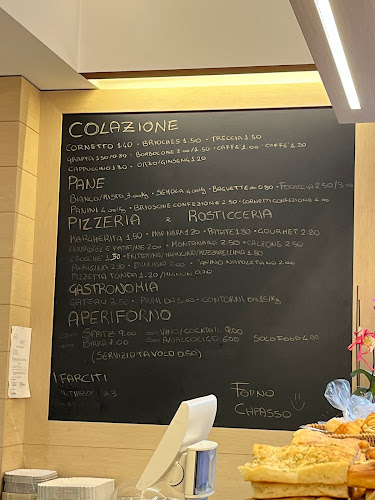 COLAZIONE
CORNETTO 1.40 - BRIOCHES 1.50 - TRECCIA 1.50
GRAFFA 1.50/0.80 - BOMBOLONE 2.00/1.50 - CAFFE' 1.00 - CAFFE' 1.20
CAPPUCCINO 1.30 - ORZO/GINSENG 1.20
PANE
BIANCO/MISTO 3.00/KG - SEMOLA 4.00/KG - BAGUETTE 0.80 - FOCACCIA 2.50/3.00
PANINI 4.00/KG - BRIOSCINE CONFEZIONE 2.50 - CORNETTI CONFEZIONE
PIZZERIA e ROSTICCERIA
MARGHERITA 1.50 - MARINARA 1.20 - PATATE 1.80 - GOURMET 2.20
WURSTEL E PATATINE 2.00 - MONTANARA 2.50 - CALZONE 2.50
CROCCHE' 1.30 - FRITTATINA/ARANCINO/MOZZARELLINA 1.50
PARIGINA 2.20 - DANUBIO 2.00 - PANINO NAPOLETANO 2.00
PIZZETTA TONDA 1.20/MIGNON
GASTRONOMIA
GATEAU 3.50 - PRIMI DA 5.00 - CONTORNI DA 15/KG
APERIFORNO
SPRITZ 9.00 VINO/COCKTAIL 9.00
BIRRA 7.00 ANALCOLICO 6.00 SOLO FOOD 4.00
(SERVIZIO TAVOLO 0.50)
FARCITI
FORNO
CHPASSO